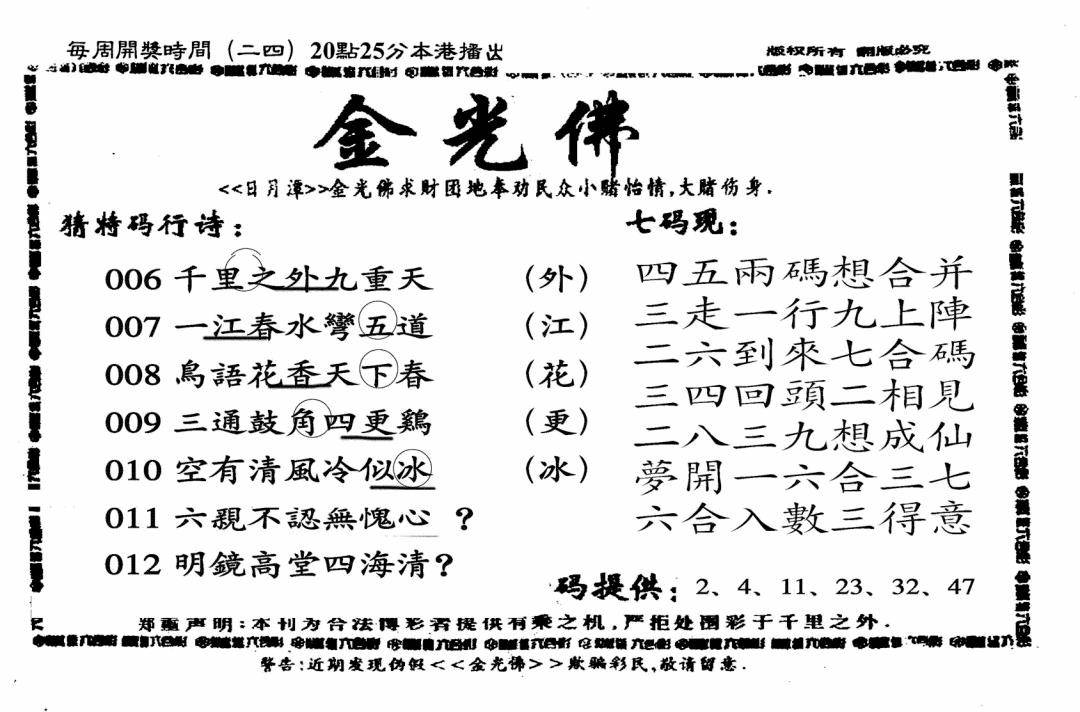 每周開獎時間（二四）20點25分本港播出
版权所有 翻版必究
金光佛
<<日月潭>>金光佛求财团地奉劝民众小赌怡情,大赌伤身.
猜特码行诗：
006 千里之外九重天 （外）
007 一江春水彎五道 （江）
008 鳥語花香天下春 （花）
009 三通鼓角四更鷄 （更）
010 空有清風冷似冰 （冰）
011 六親不認無愧心 ？
012 明鏡高堂四海清？
七码现：
四五兩碼想合并
三走一行九上陣
二六到來七合碼
三四回頭二相見
二八三九想成仙
夢開一六合三七
六合入數三得意
码提供：2、4、11、23、32、47
郑重声明：本刊为合法博彩者提供有乘之机,严拒处围彩于千里之外.
警告:近期发现伪假<<金光佛>>欺骗彩民,敬请留意.